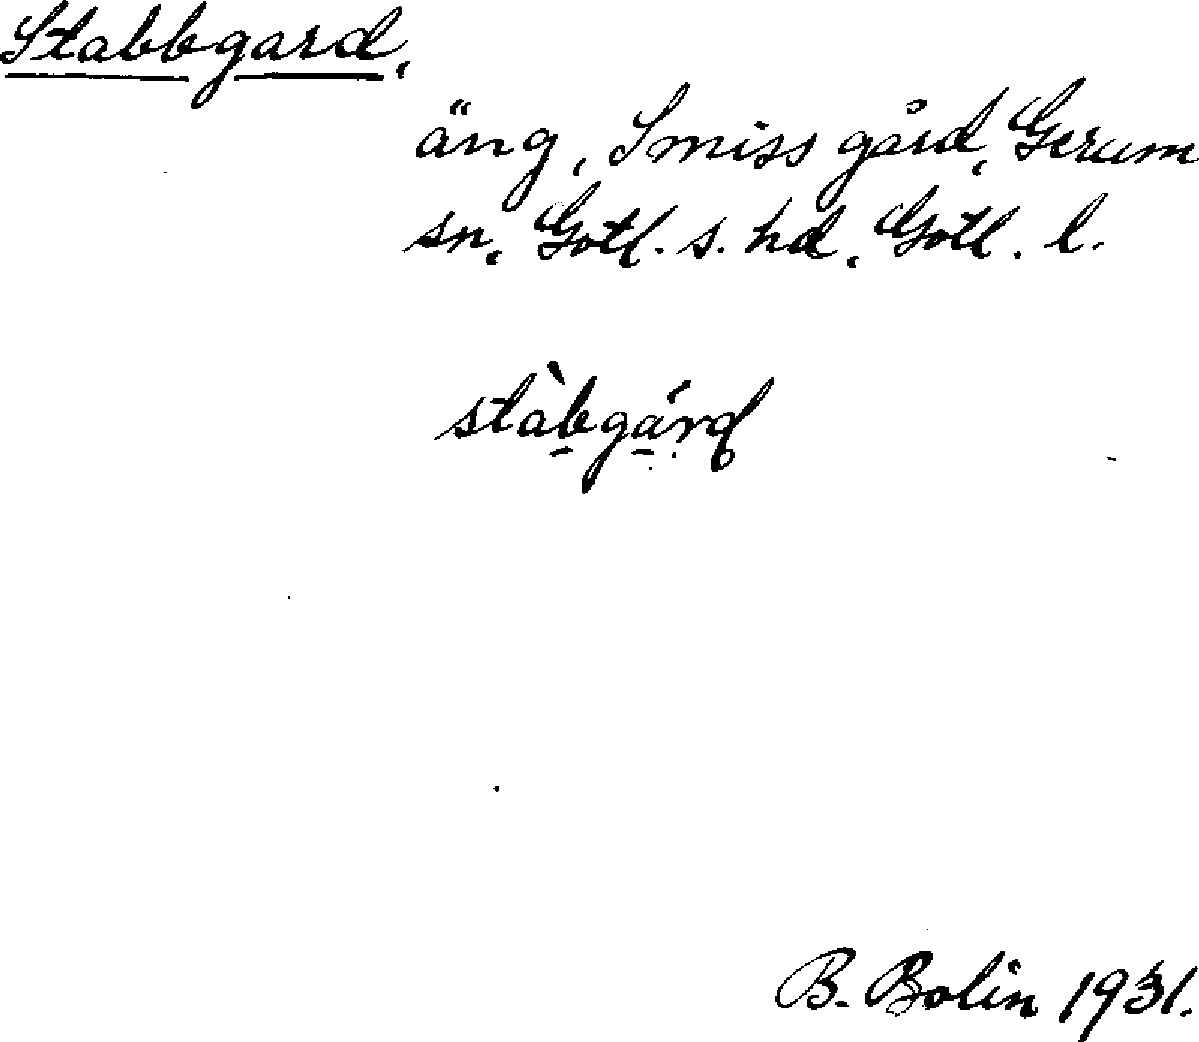 Stabbgard,
äng, Smiss gård, Gerum
sn, Gotl. s. hd, Gotl. l.
stàb̠gá̠rd
B. Bolin 1931.